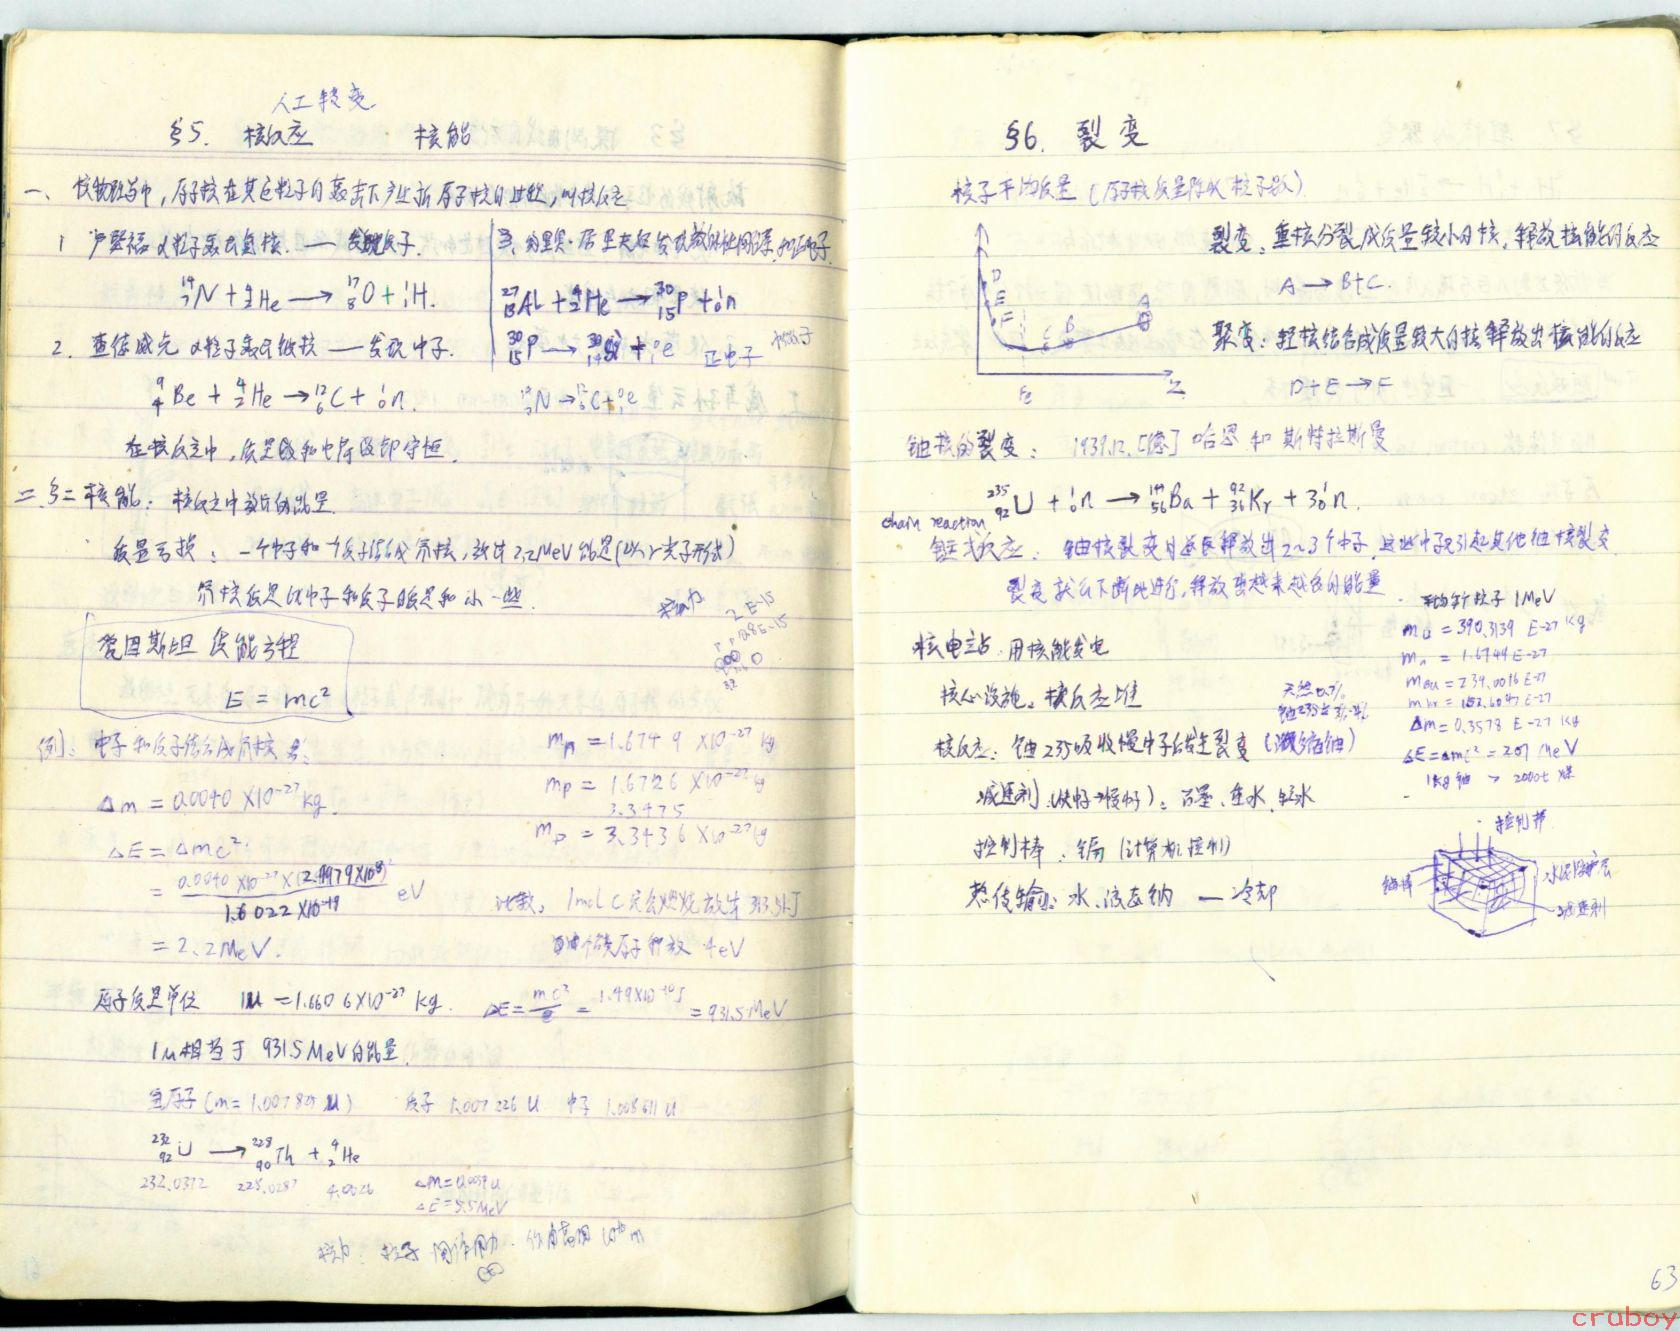 人工转变
§5. 核反应 核能
一、核物理学中，原子核在其它粒子的轰击下产生新原子核的过程，叫核反应
1 卢瑟福 α粒子轰击氮核 — 发现质子.
¹⁴₇N + ⁴₂He → ¹⁷₈O + ¹₁H.
2. 查德威克 α粒子轰击铍核 — 发现中子.
⁹₄Be + ⁴₂He → ¹²₆C + ¹₀n.
3、约里奥·居里夫妇发现放射性同位素,和正电子
²⁷₁₃Al + ⁴₂He → ³⁰₁₅P + ¹₀n
³⁰₁₅P → ³⁰₁₄Si + ⁰₁e 正电子
N → C + ⁰₁e
在核反应中，质量数和电荷数都守恒.
二、§二 核能：核反应中放出的能量.
质量亏损：一个中子和一个质子结合成氘核，放出2.2MeV能量(以γ光子形式)
氘核质量比中子和质子质量和小一些.
爱因斯坦 质能方程
E = mc²
2 E-15
0.8E-15
例：中子和质子结合成氘核
mₙ = 1.6749 ×10⁻²⁷ kg
mp = 1.6726 ×10⁻²⁷ kg
3.3475
m_D = 3.3436 ×10⁻²⁷ kg
Δm = 0.0040 ×10⁻²⁷ kg.
ΔE = Δmc²
= 0.0040 ×10⁻²⁷ × (2.9979×10⁸)² / 1.6022 ×10⁻¹⁹ eV
= 2.2 MeV.
比较：1mol C完全燃烧放出 393.5kJ
每个碳原子释放 4eV
原子质量单位 1u = 1.6606×10⁻²⁷ kg. ΔE = mc²/e = 1.49×10⁻¹⁰J = 931.5 MeV
1u相当于 931.5 MeV的能量.
氢原子 (m = 1.007825 u) 质子 1.007226 u 中子 1.008 u
²³²₉₂U → ²²⁸₉₀Th + ⁴₂He
232.0372 228.0287 4.0026 Δm = 0.0059u
ΔE = 5.5MeV
核力：核子间作用力. 作用范围
63
§6. 裂变
核子平均质量 (原子核质量除以核子数)
D
E
F
A
B
C
Fe
Z
裂变：重核分裂成质量较小的核，释放核能的反应
A → B+C.
聚变：轻核结合成质量较大的核释放出核能的反应
D + E → F
铀核的裂变： 1939.12. [德] 哈恩 和 斯特拉斯曼
²³⁵₉₂U + ¹₀n → ¹⁴¹₅₆Ba + ⁹²₃₆Kr + 3¹₀n.
chain reaction
链式反应：铀核裂变时还长释放出2~3个中子，这些中子又引起其他铀核裂变
裂变就会不断地进行，释放出越来越多的能量.
平均每个粒子 1MeV
m_U = 390.3139 E-27 kg
mₙ = 1.6749 E-27
m_Ba = 234.0016 E-27
m_Kr = 152.6047 E-27
Δm = 0.3578 E-27 kg
ΔE = Δmc² = 201 MeV
1kg 铀 > 2000t 煤
核电站 用核能发电
核心设施：核反应堆
天然 0.7%
铀235占 3%-4%
核反应：铀235吸收慢中子后发生裂变 (浓缩铀)
减速剂 (快中子→慢中子)：石墨、重水、轻水
控制棒：镉 (计算机控制)
热传输：水、液态钠 — 冷却
控制棒
铀棒
水泥防护层
减速剂
cruboy